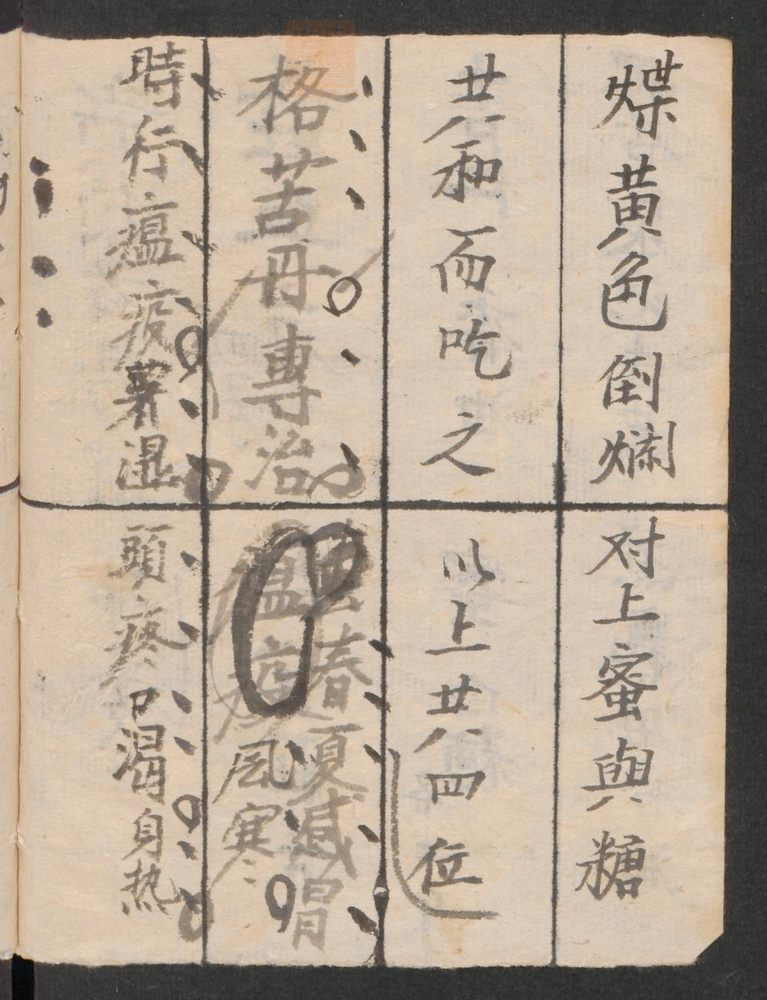 煠黄色倒爛
对上蜜與糖
共和而吃之
以上共四位
格苦丹專治
春夏感冒
瘟疫風寒
時行瘟疫暑湿
頭疼口渴身热